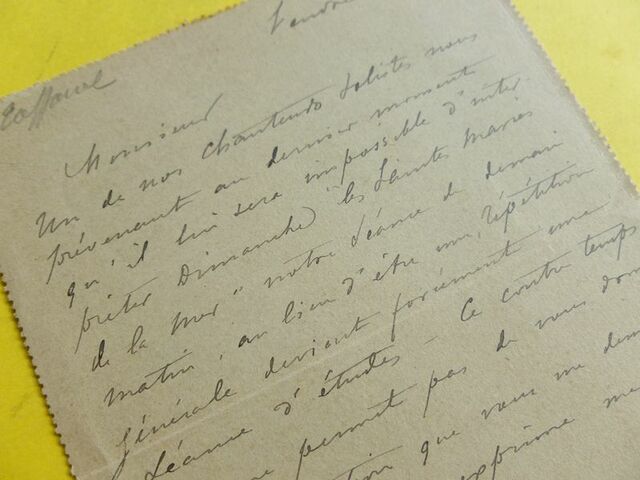 Taffanel
Vendre
Monsieur
Un de nos chanteurs solistes nous
prévenant au dernier moment
qu'il lui sera impossible d'inter-
prêter Dimanche "les Saintes Maries
de la mer" notre séance de demain
matin, au lieu d'être une répétition
générale devient forcément une
séance d'études - Ce contre temps
ne permet pas de vous don
que vous me dem
exprime me